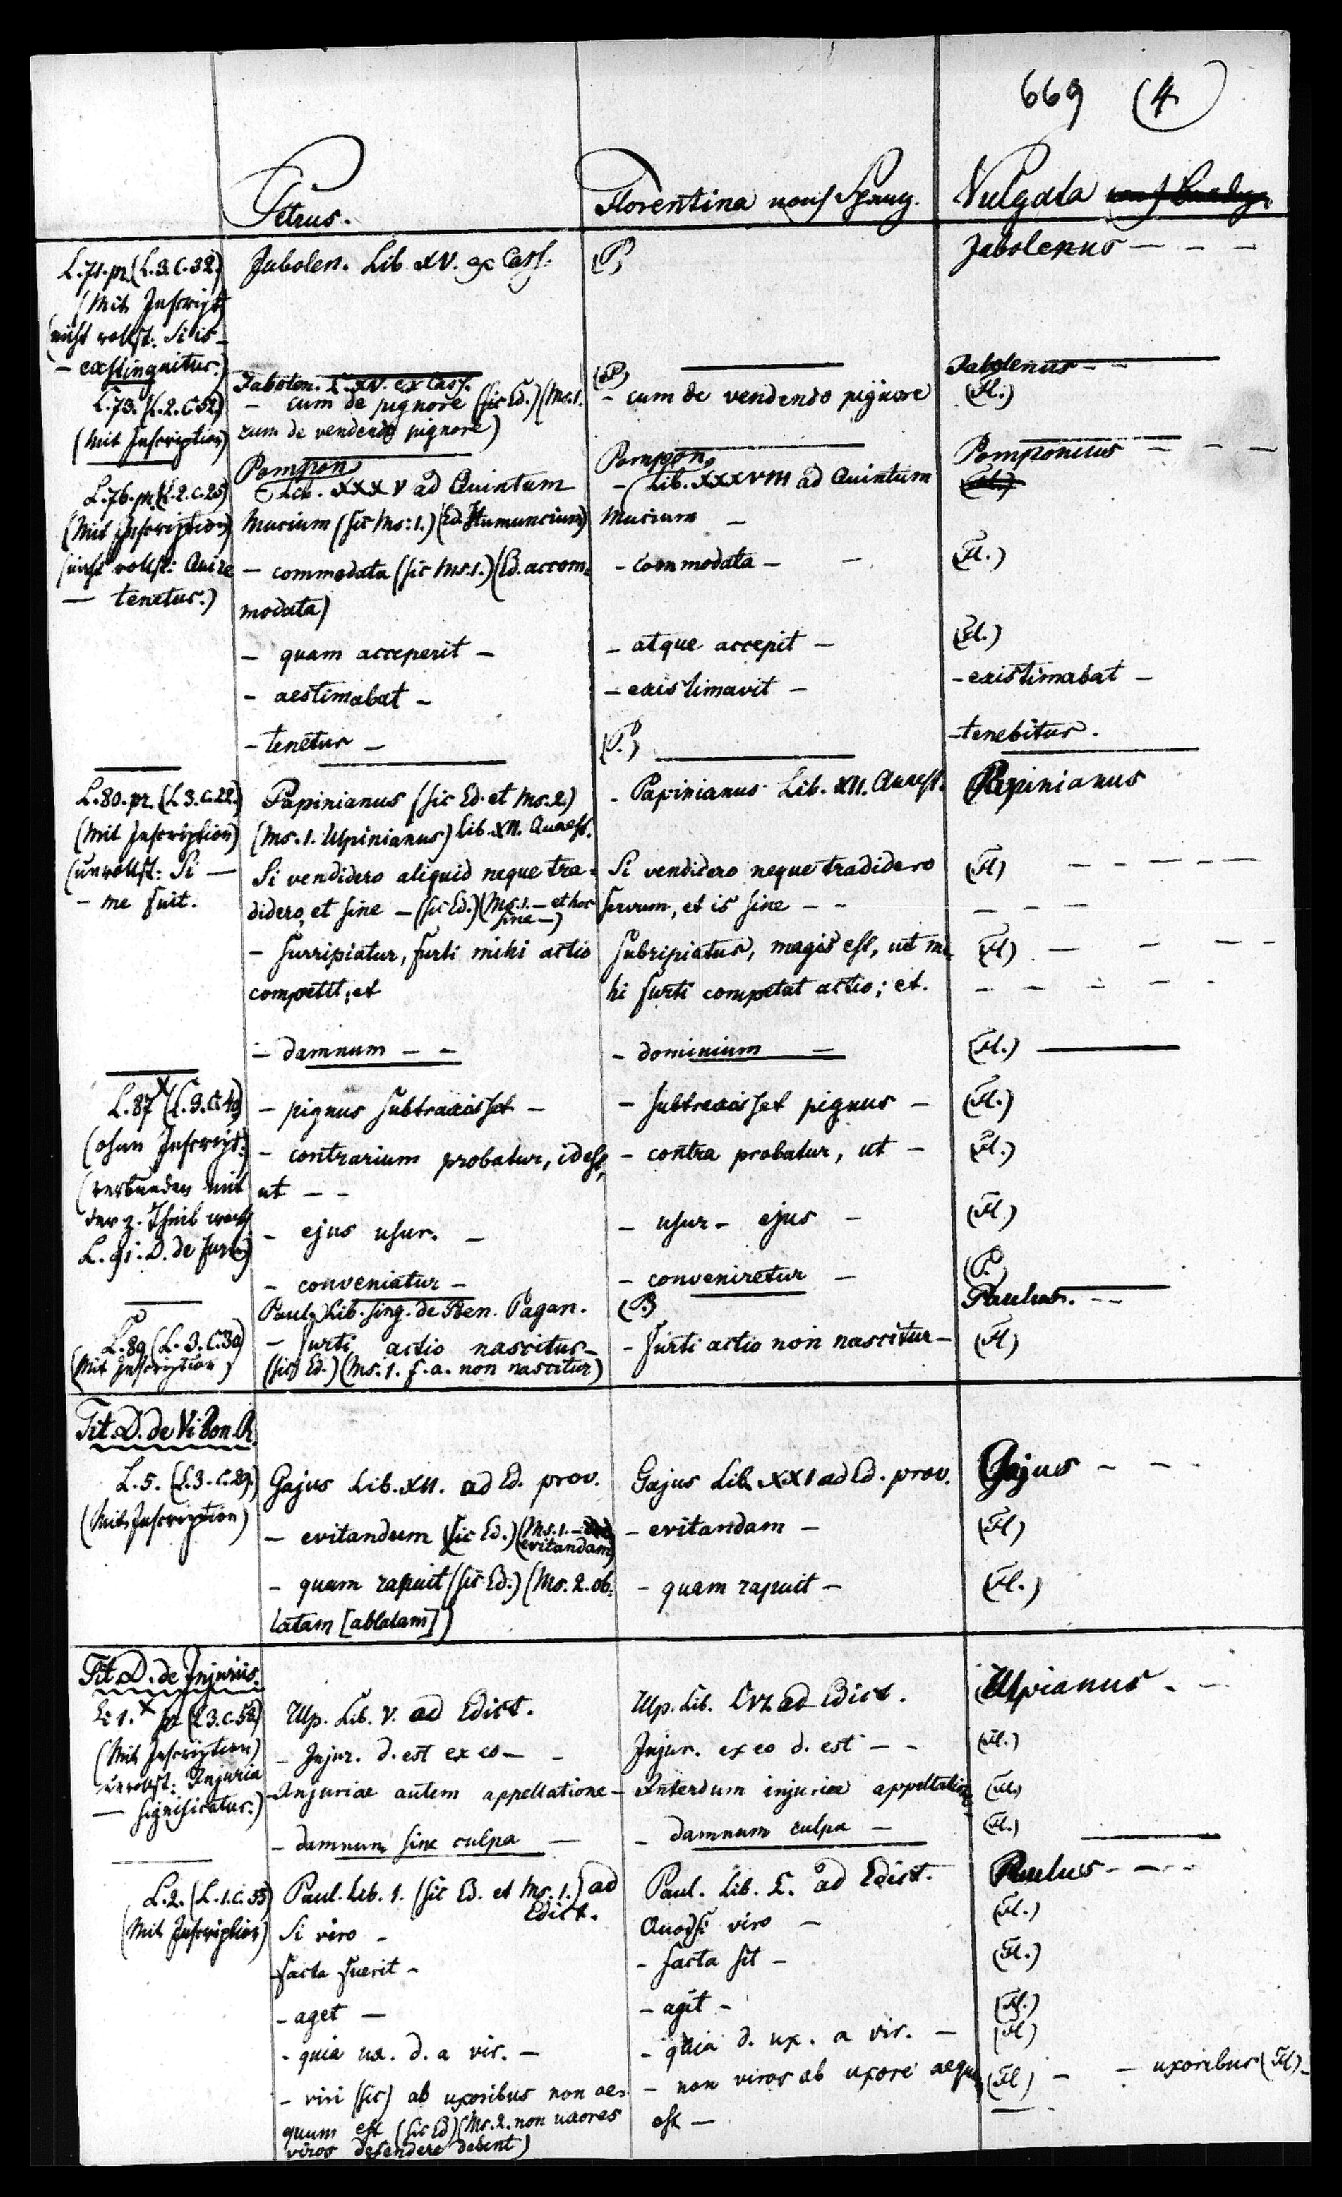 669 (4)
Petrus.
Florentina nach Spang.
Vulgata
L. 71. pr. (L. 3. C. 32.)
(Mit Inscript.)
(nicht vollst. Si is -
- exstinguitur.)
Jabolen. Lib. XV. ex Cass.
(P.)
Jabolenus - - -
L. 73. (L. 2. C. 52)
(Mit Inscription)
Jabolen. L. XV. ex Cass.
- cum de pignore (sic Ed.) (Ms. 1.
cum de vendendo pignore)
(P.)
- cum de vendendo pignore
Jabolenus - -
(Fl.)
L. 76. pr. (L. 2. C. 25)
(Mit Inscription)
(nicht vollst: Qui re
- tenetur.)
Pompon.
Lib. XXXV ad Quintum
Mucium (sic Ms: 1.) (Ed. Humuncium)
- commodata (sic Ms. 1.) (Ed. accom-
modata)
- quam acceperit -
- aestimabat -
- tenetur -
Pompon.
- Lib. XXXVIII ad Quintum
Mucium -
- commodata - -
- atque accepit -
- existimavit -
(P.)
Pomponius - - -
(Fl.)
(Fl.)
(Fl.)
- existimabat -
- tenebitur.
L. 80. pr. (L. 3. C. 22.)
(Mit Inscription)
(unvollst: Si -
- me fuit.
Papinianus (sic Ed. et Ms. 2)
(Ms. 1. Ulpinianus) Lib. XII. Quaest.
Si vendidero aliquid neque tra-
didero, et sine - (sic Ed.) (Ms. 1. - et hoc
sine -)
- surripiatur, furti mihi actio
competit, et
- damnum - -
- Papinianus Lib. XII. Quaest.
Si vendidero neque tradidero
servum, et is sine - -
subripiatur, magis est, ut mi-
hi furti competat actio; et.
- dominium -
Papinianus
(Fl) - - - - -
- - -
(Fl) - - - -
- - - - -
(Fl.)
L. 87 x (L. 3. C. 40)
(ohne Inscript.)
(verbunden mit
der z. Theil nach
L. 91. D. de furt.)
- pignus subtraxisset -
- contrarium probatur, id est,
ut - -
- ejus usur. -
- conveniatur -
- subtraxisset pignus -
- contra probatur, ut -
- usur - ejus -
- conveniretur -
(Fl.)
(Fl.)
(Fl)
(P.)
L. 89 (L. 3. C. 30)
(Mit Inscription)
Paul. Lib. sing. de Poen. Pagan.
- furti actio nascitur -
(sic Ed.) (Ms. 1. f. a. non nascitur)
(P.)
- furti actio non nascitur -
Paulus. - -
(Fl)
Tit. D. de Vi Bon. R.
L. 5. (L. 3. C. 29.)
(Mit Inscription)
Gajus Lib. XII. ad Ed. prov.
- evitandum (sic Ed.) (Ms. 1. -
evitandam)
- quam rapuit (sic Ed.) (Ms. 2. ob-
latam [ablatam])
Gajus Lib. XXI ad Ed. prov.
- evitandam -
- quam rapuit -
Gajus - - -
(Fl)
(Fl.)
Tit. D. de Injuriis.
L. 1. x pr (L. 3. C. 52)
(Mit Inscription)
unvollst: Injuria
- significatur.)
Ulp. Lib. V. ad Edict.
- Injur. d. est ex eo - -
- Injuriae autem appellatione -
- damnum sine culpa -
Ulp. Lib. LVI. ad Edict.
Injur. ex eo d. est - -
- Interdum injuriae appellatione
- damnum culpa -
Ulpianus - -
(Fl.)
(Fl)
(Fl.)
L. 2. (L. 1. C. 55)
(Mit Inscription)
Paul. Lib. 1. (sic Ed. et Ms. 1.) ad
Edict.
Si viro -
- facta fuerit -
- aget -
- quia ux. d. a vir. -
- viri (sic) ab uxoribus non ae-
quum est (sic Ed) (Ms. 2. non uxores
viros defendere debent)
Paul. Lib. L. ad Edict.
Quodsi viro -
- facta sit -
- agit -
- quia d. ux. a vir. -
- non viros ab uxore aequum
est -
Paulus - - - -
(Fl.)
(Fl.)
(Fl.)
(Fl)
(Fl) - - uxoribus (Fl) -